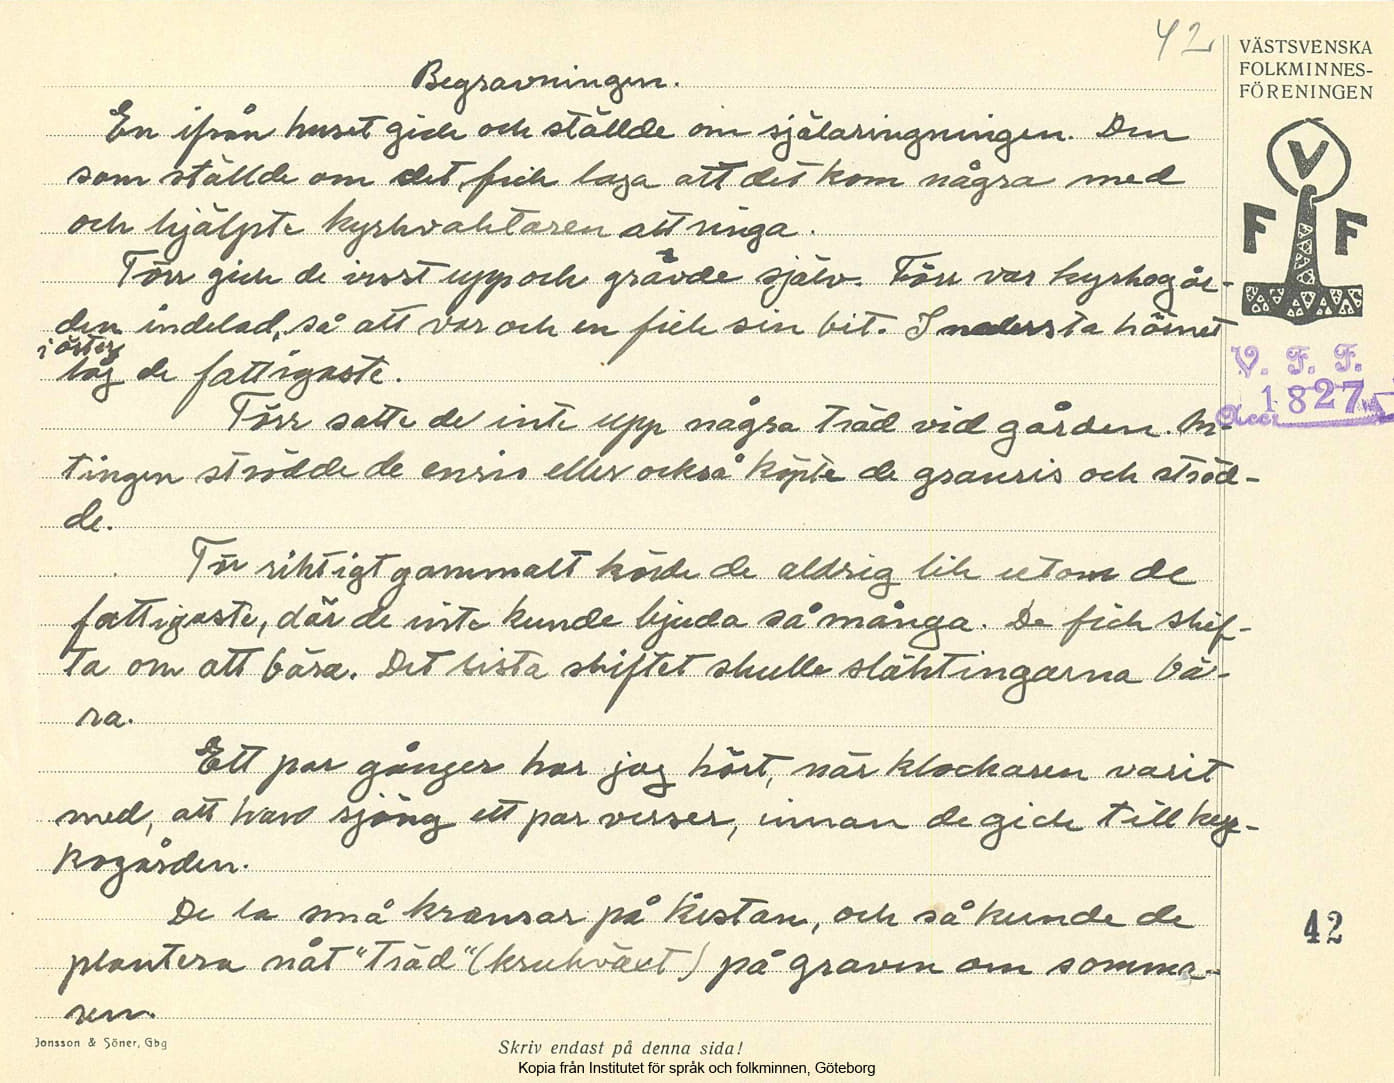 42
VÄSTSVENSKA
FOLKMINNES-
FÖRENINGEN
Begravningen.
En ifrån huset gick och ställde om själaringningen. Den
som ställde om det, fick laga att det kom några med
och hjälpte kyrkvaktaren att ringa.
Förr gick de visst upp och grävde själv. Förr var kyrkogår-
den indelad, så att var och en fick sin bit. I nedersta hörnet
i öster
låg de fattigaste.
Förr satte de inte upp några träd vid gården. An-
tingen strödde de enris eller också köpte de granris och ströd-
de.
För riktigt gammalt körde de aldrig lik utom de
fattigaste, där de inte kunde bjuda så många. De fick skif-
ta om att bära. Det sista skiftet skulle släktingarna bä-
ra.
Ett par gånger har jag hört, när klockaren varit
med, att han sjöng ett par verser, innan de gick till kyr-
kogården.
De la små kransar på kistan, och så kunde de
plantera nåt "träd" (krukväxt) på graven om somma-
ren.
V
F F
V. F. F.
Acc. 1827
42
Jonsson & Söner, Gbg
Skriv endast på denna sida!
Kopia från Institutet för språk och folkminnen, Göteborg